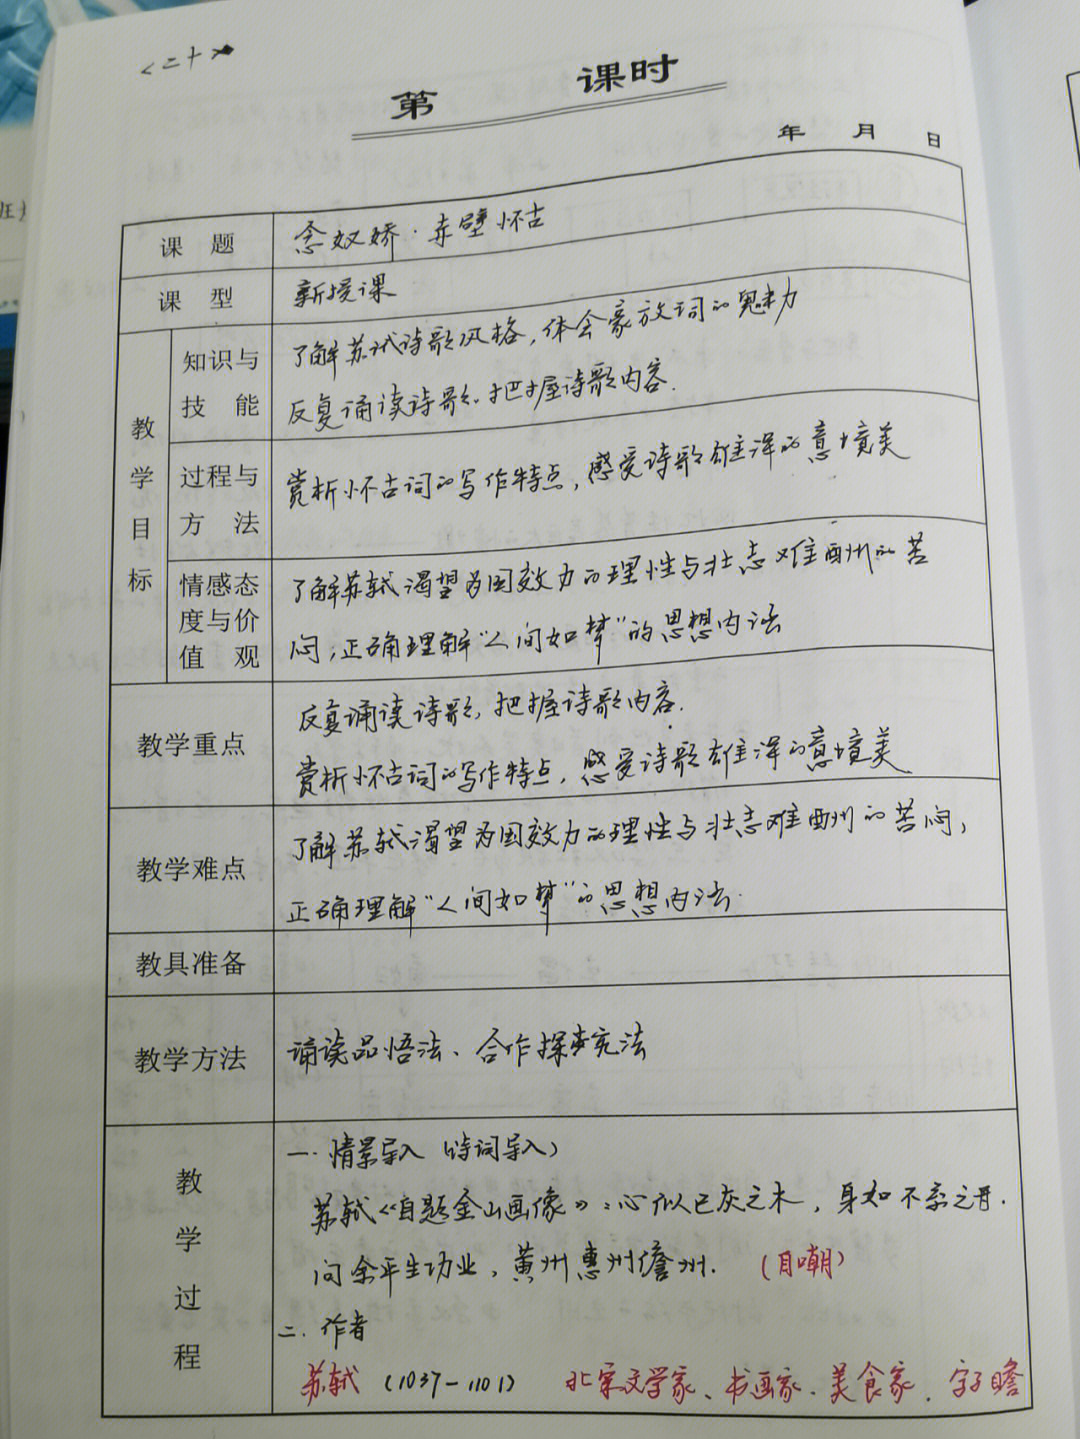 <二十>
第 课时
年 月 日
课 题 念奴娇·赤壁怀古
课 型 新授课
教学目标
知识与技 能
了解苏轼诗歌风格,体会豪放词的魅力
反复诵读诗歌,把握诗歌内容.
过程与方 法
赏析怀古词的写作特点,感受诗歌雄浑的意境美
情感态度与价值 观
了解苏轼渴望为国效力的理性与壮志难酬的苦
闷,正确理解“人间如梦”的思想内涵
教学重点
反复诵读诗歌,把握诗歌内容.
赏析怀古词的写作特点,感受诗歌雄浑的意境美
教学难点
了解苏轼渴望为国效力的理性与壮志难酬的苦闷,
正确理解“人间如梦”的思想内涵.
教具准备
教学方法 诵读品悟法、合作探究法
教学过程
一.情景导入(诗词导入)
苏轼《自题金山画像》:心似已灰之木,身如不系之舟.
问余平生功业,黄州惠州儋州. (自嘲)
二.作者
苏轼 (1037-1101) 北宋文学家、书画家.美食家.字子瞻